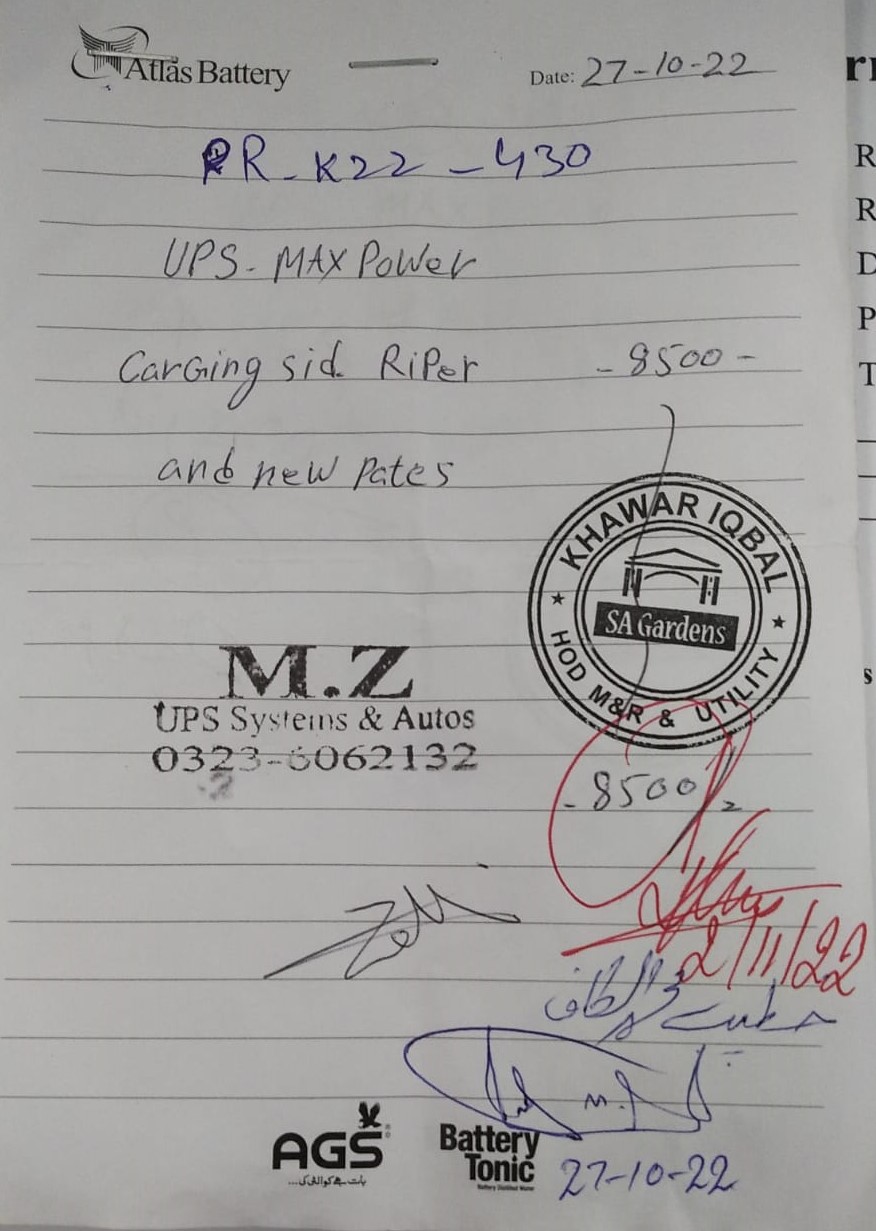 Atlas Battery
Date: 27-10-22
PR-K22-430
UPS-MAX Power
CarGing sid RiPer -8500-
and new Pates
KHAWAR IQBAL
SA Gardens
HOD M&R & UTILITY
M.Z
UPS Systems & Autos
0323-6062132
-8500/2
2/11/22
AGS
بات ہے کوالٹی کی...
Battery
Tonic
27-10-22
R
R
D
P
T
s